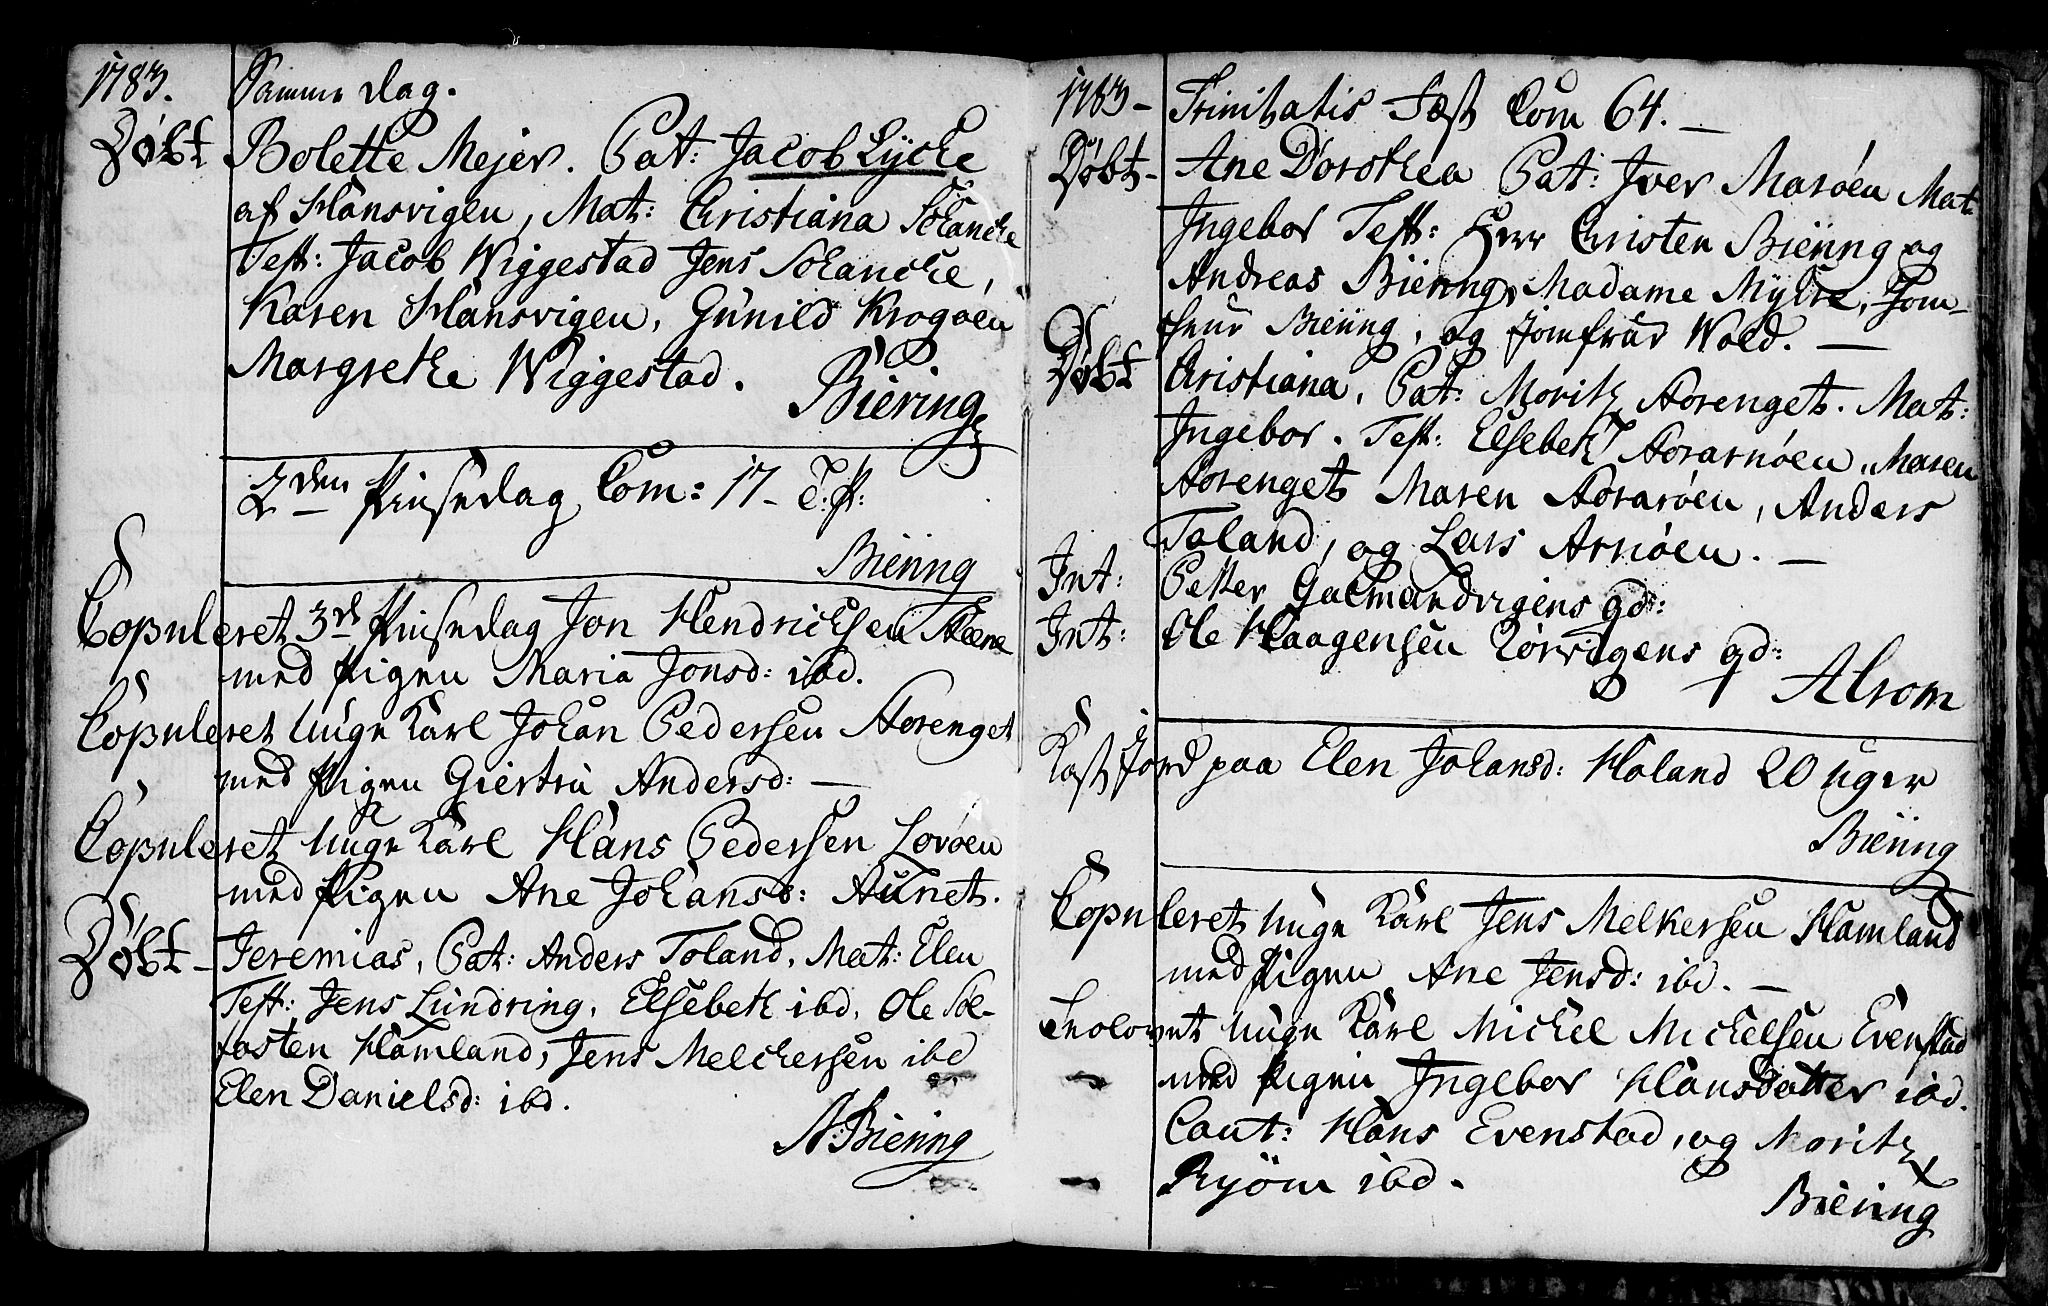 1783.
Samme dag.
Døbt Bolette Mejer. Pat: Jacob Lÿcke
af Hansvigen, Mat: Christiana Schancke
Test: Jacob Wiggestad Jens Schancke,
Karen Hansvigen, Gunild Krogøen
Margrethe Wiggestad.
Biering
2den Pinsedag Com: 17 - T. P:
Biering
Copuleret 3die Pinsedag Jon Hendrichsen
med Pigen Maria Jonsd: ibd.
Copuleret unge Karl Johan Pedersen Aorenget
med Pigen Giertru Andersd: —
Copuleret unge Karl Hans Pedersen Lovøen
med Pigen Ane Johansd: Aunet.
Døbt - Jeremias, Pat: Anders Toland, Mat: Elen
Test: Jens Lundring, Elsebeth ibd, Ole Sel-
fosten Hamland, Jens Melchersen ibd
Elen Danielsd: ibd.
A: Biering
1783 - Trinitatis Fæst Com 64. —
Døbt - Ane Dorothea Pat: Iver Marøen Mat
Ingebor Test: Herr Christen Biering og
Andreas Biering, Madame Myhre, Jom-
frue Biering, og Jomfrue Wold. —
Døbt Christiana, Pat: Moritz Aorenget. Mat:
Ingebor. Test: Elsebeth Aorarnøen, Maren
Aorenget Maren Aorarøen, Anders
Toland, og Lars Arnøen. —
Int: Petter Galmandvigens gd:
Int: Ole Haagensen Rørvigens gd:
Alrom
Kast Jord paa Elen Johansd: Haland 20 uger
Biering
Copuleret unge Karl Jens Melkersen Hamland
med Pigen Ane Jensd: ibd. —
Trolovet unge Karl Michel Michelsen Evenstad
med Pigen Ingebor Hansdatter ibd.
Caut: Hans Evenstad, og Moritz
Ryöm ibd.
Biering